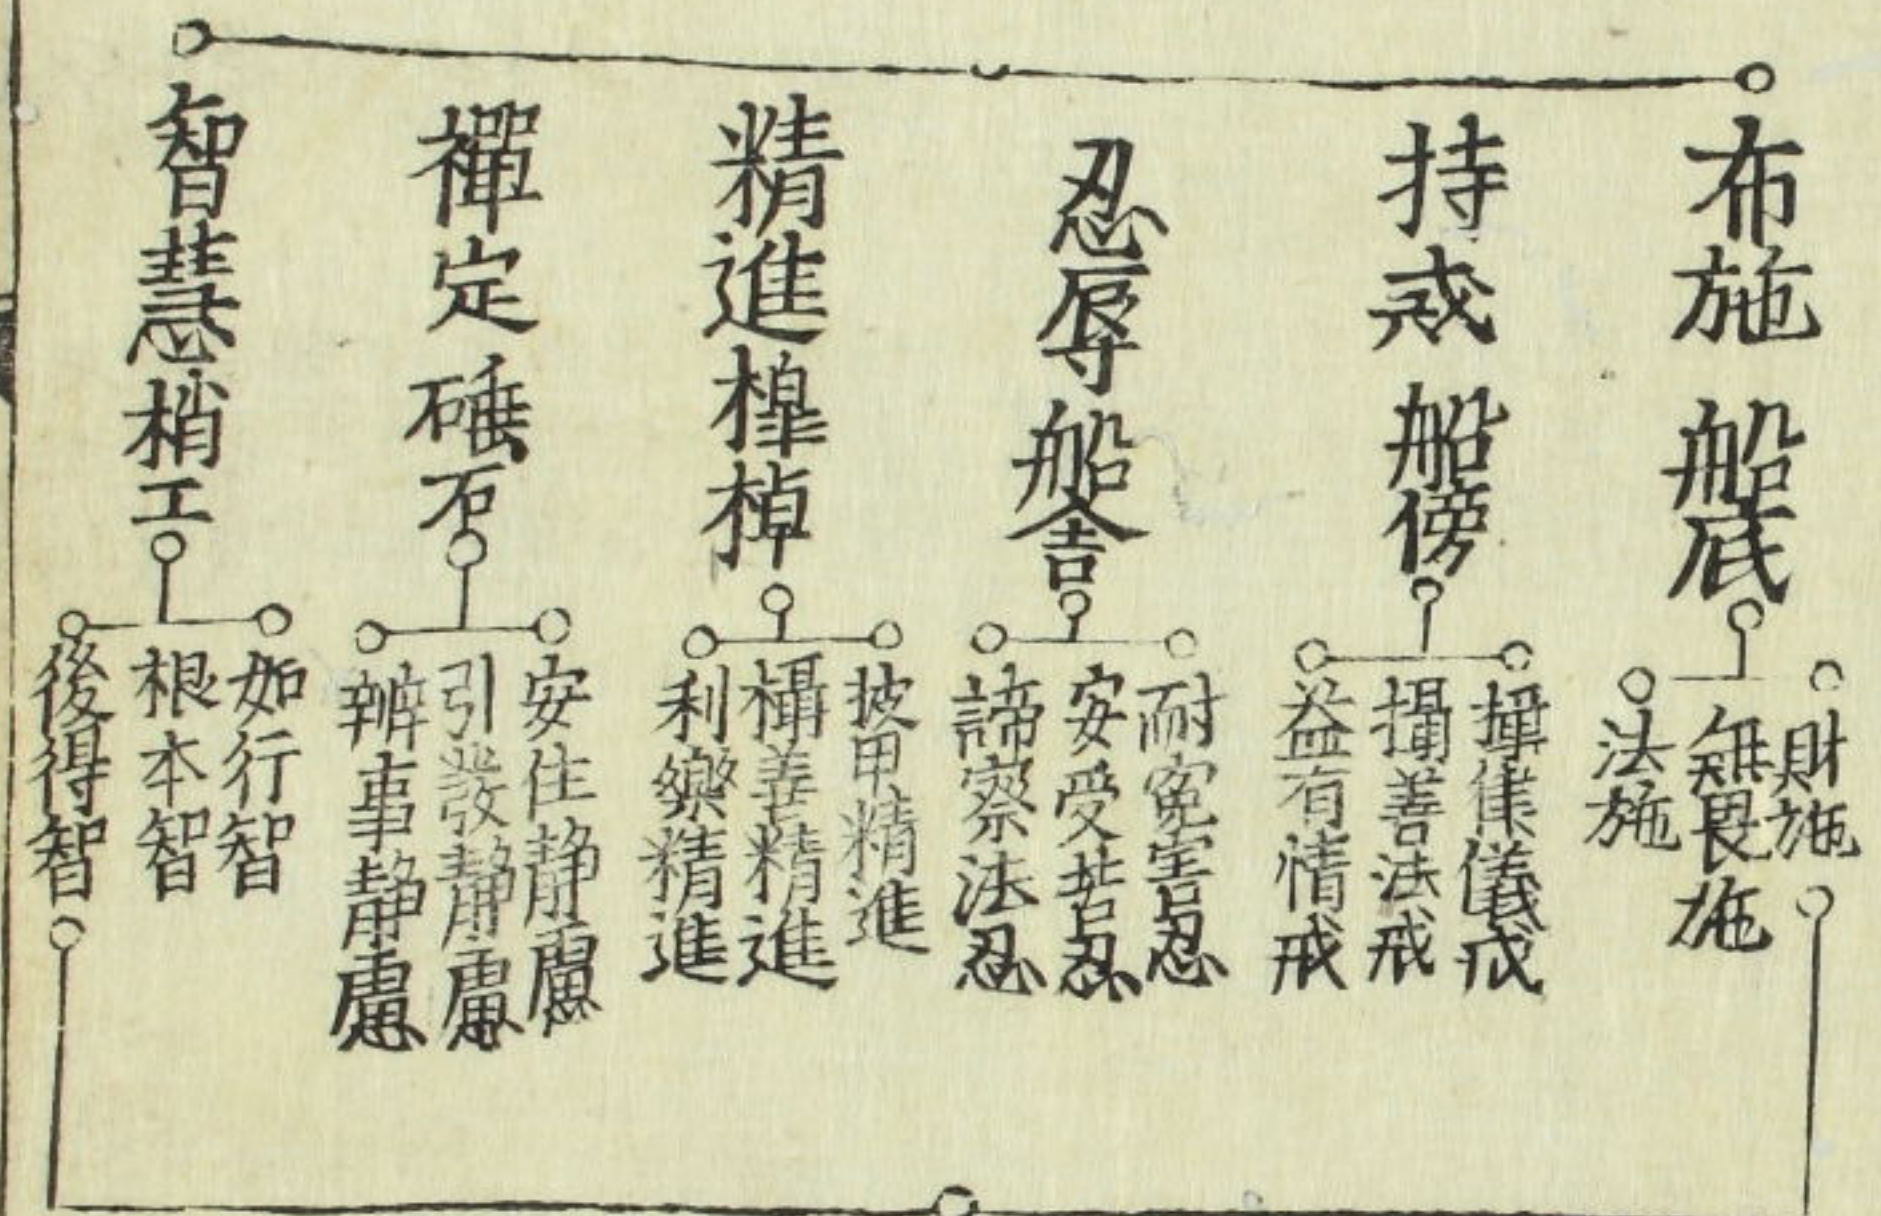 布施船底
財施
無畏施
法施
持戒船傍
攝律儀戒
攝善法戒
益有情戒
忍辱船舎
耐寃害忍
安受苦忍
諦察法忍
精進槔棹
披甲精進
攝善精進
利樂精進
禪定硾石
安住静慮
引發静慮
辨事静慮
智慧梢工
如行智
根本智
後得智